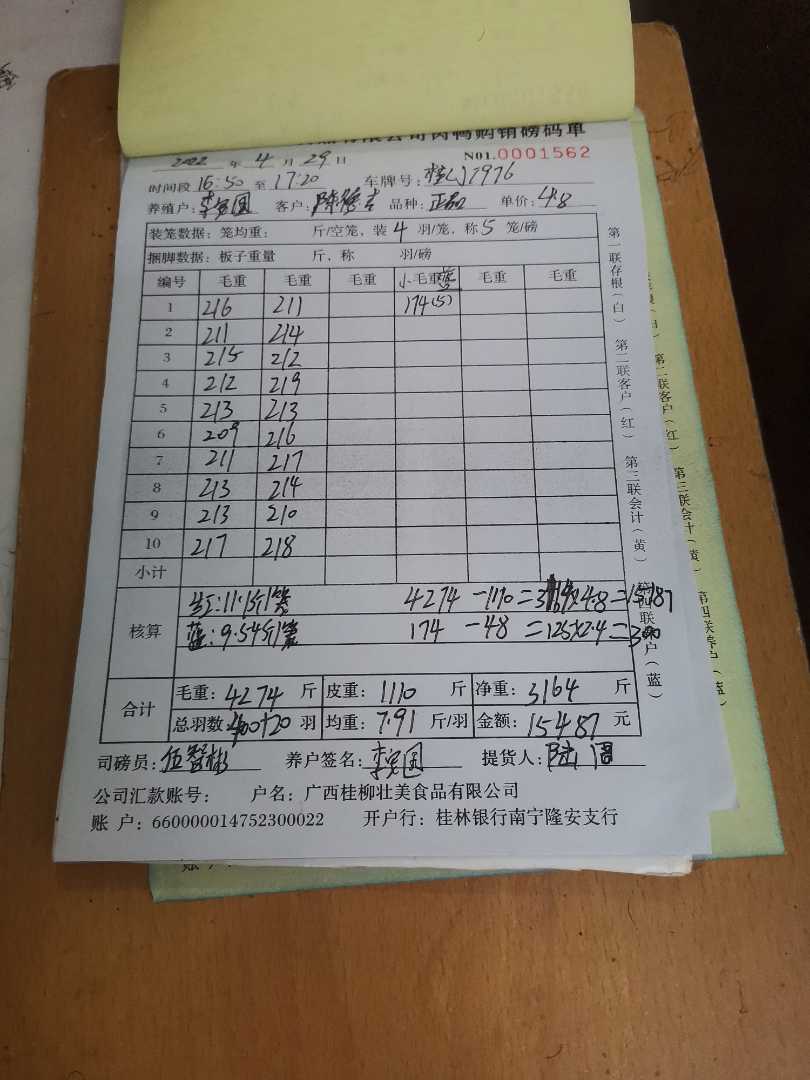 限公司肉鸭购销磅码单
2022 年 4 月 29 日 NO1.0001562
时间段 16:50 至 17:20 车牌号: 7976
养殖户: 李 国 客户: 陈 品种: 正品 单价: 4.8
装笼数据: 笼均重: 斤/空笼、装 4 羽/笼、称 5 笼/磅
捆脚数据: 板子重量 斤、称 羽/磅
编号 毛重 毛重 毛重 小毛重蓝 毛重 毛重
1 216 211 174(5)
2 211 214
3 215 212
4 212 219
5 213 213
6 209 216
7 211 217
8 213 214
9 213 210
10 217 218
小计
核算 红:11.1斤/笼 4274 -1110=3164×4.8=15187
蓝:9.54斤/笼 174 -48 =125×2.4=300
合计 毛重: 4274 斤 皮重: 1110 斤 净重: 3164 斤
总羽数: 400+20 羽 均重: 7.91 斤/羽 金额: 15487 元
司磅员: 伍智彬 养户签名: 李 国 提货人: 陆
公司汇款账号: 户名: 广西桂柳壮美食品有限公司
账 户: 660000014752300022 开户行: 桂林银行南宁隆安支行
第一联存根(白) 第二联客户(红) 第三联会计(黄) 第四联养户(蓝)
第二联客户(红) 第三联会计(黄) 第四联养户(蓝)